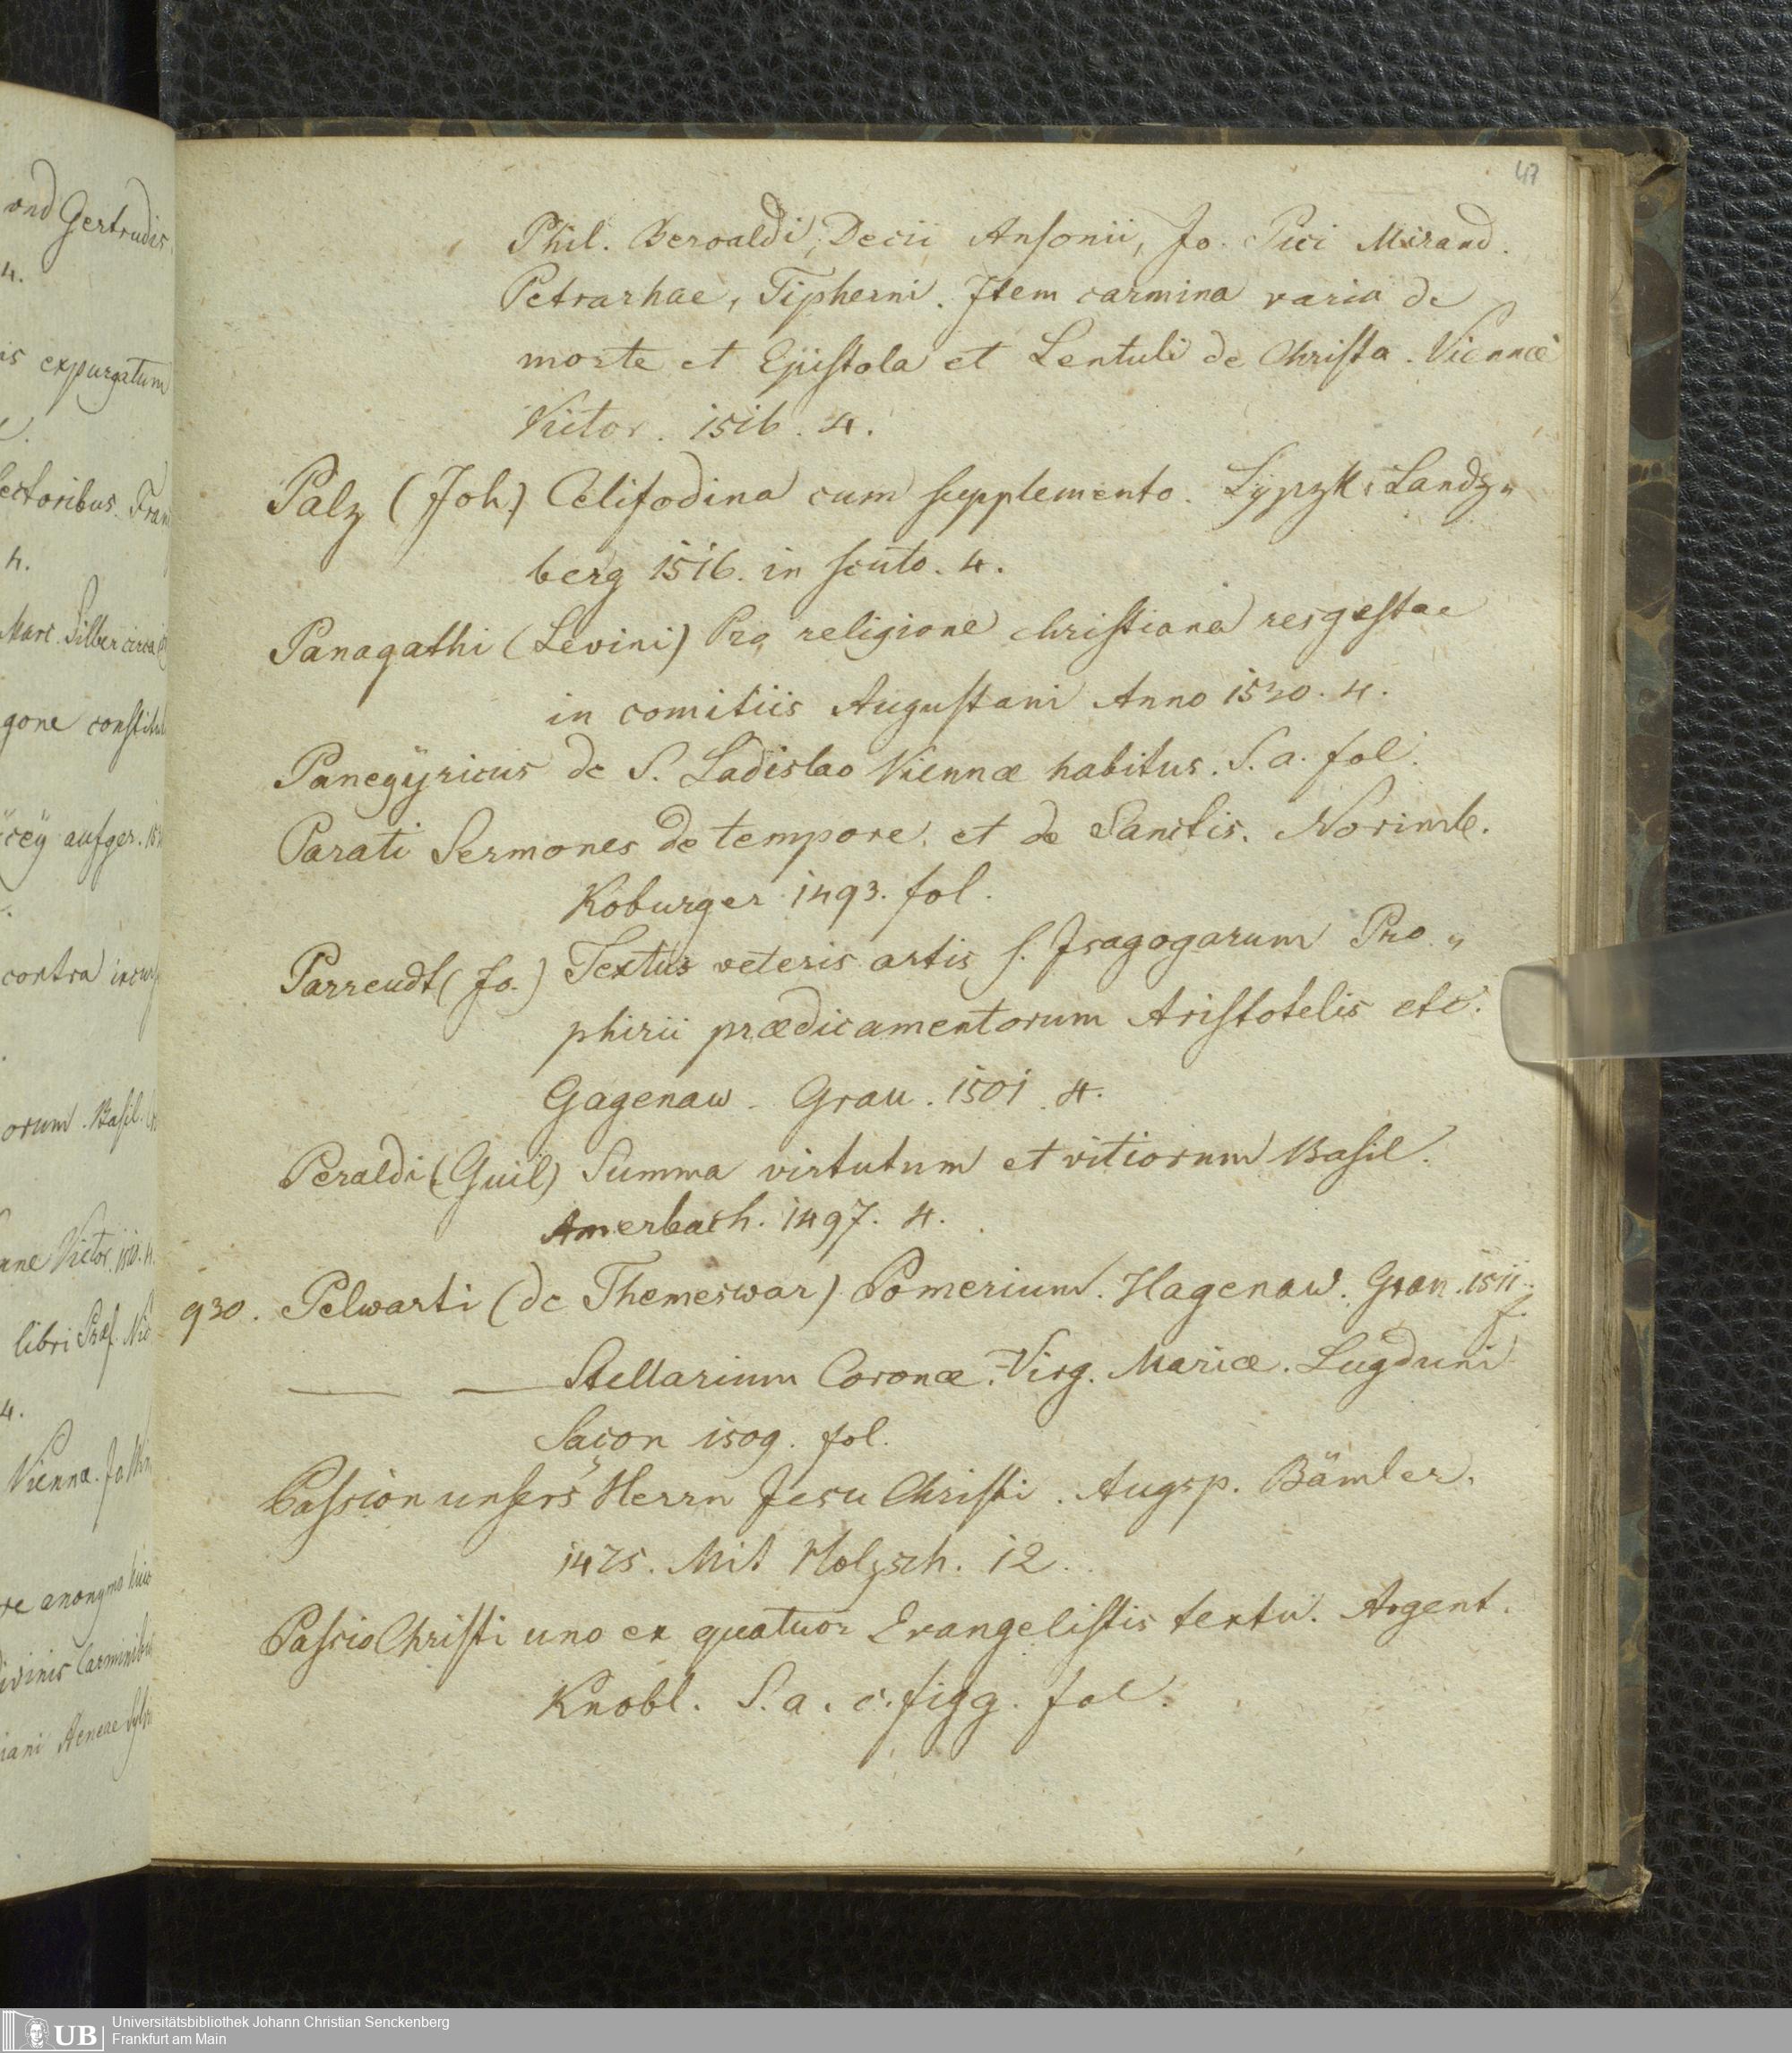 47
Phil. Beroaldi, Decii Ansonii, Jo. Pici Mirand.
Petrarhae, Tipherni. Item carmina varia de
morte et Epistola et Lentuli de Christa. Viennæ
Vietor. 1516. 4.
Palz (Joh.) Celifodina cum supplemento. Lypzk. Landz„
berg 1516. in scuto. 4.
Panagathi (Levini) Pro religione christiana resgestae
in comitiis Augustani Anno 1530. 4.
Panegÿricus de S. Ladislao Viennæ habitus. S. a. fol.
Parati Sermones de tempore et de Sanctis. Norimb.
Koburger 1493. fol.
Parreudt (Jo.) Textus veteris artis s. Isagogarum Pro„
phirii prædicamentorum Aristotelis etc.
Gagenaw. Grau. 1501. 4.
Peraldi (Guil) Summa virtutum et vitiorum Basil.
Amerbach. 1497. 4.
930. Pelwarti (de Themeswar) Pomerium. Hagenaw. Gran. 1511.
f.
— — Stellarium Coronæ Virg. Mariæ. Lugduni
Sacon 1509. fol.
Passion unsers Herrn Jesu Christi. Augsp. Bämler.
1475. Mit Holzsch. 12.
Passio Christi uno ex quatuor Evangelistis textu. Argent.
Knobl. S. a. c. figg. fol.
und Gertrudis
4.
is expurgatum
ectoribus. Fran
4.
Marc. Silber circa
gone constitu
cëÿ aufger.
contra
orum. Basil.
Vietor. 4.
libri Præf. Nic
4.
Vienna.
re anonymo
ivinis Carminibus
iani Aeneae Sylv
UB
Universitätsbibliothek Johann Christian Senckenberg
Frankfurt am Main